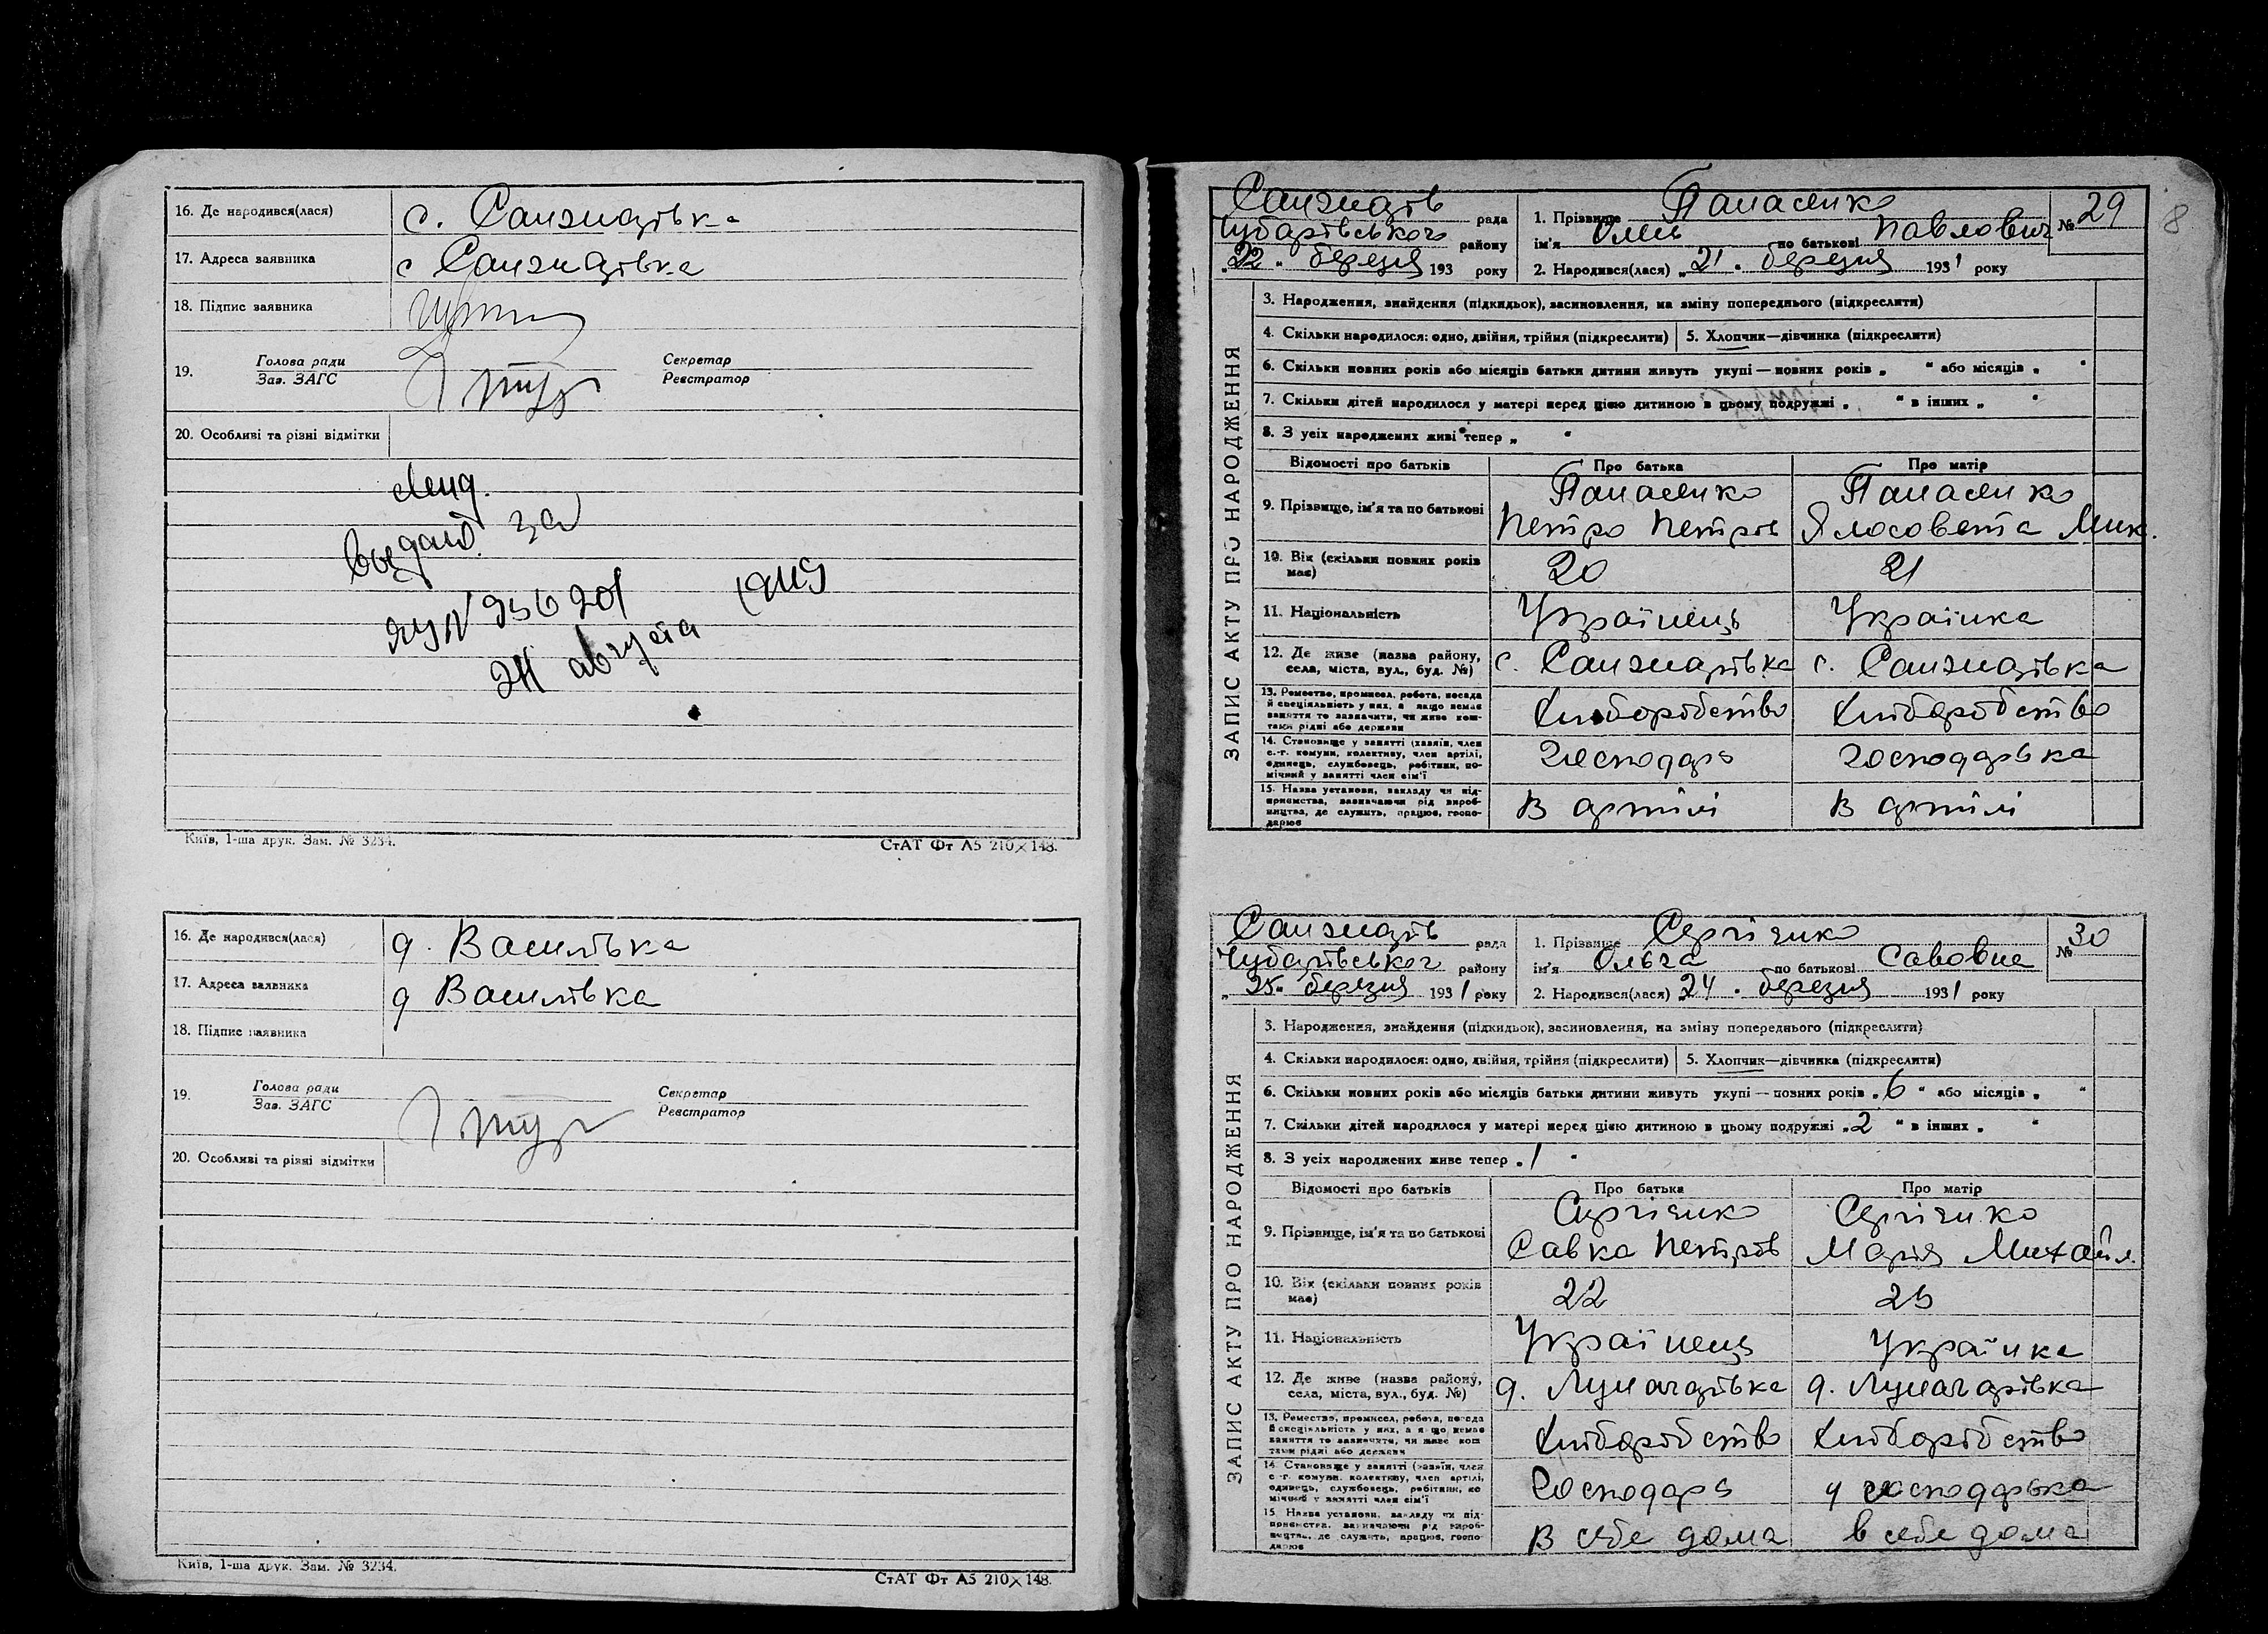 16. Де народився(лася) с. Санжарівка
17. Адреса заявника с Санжарівка
18. Підпис заявника
19. Голова ради
Зав. ЗАГС
Секретар
Реєстратор
20. Особливі та різні відмітки
за
24 августа
Київ, 1-ша друк. Зам. № 3234.
СтАТ Фт А5 210×148.
16. Де народився(лася) д. Василівка
17. Адреса заявника д Василівка
18. Підпис заявника
19. Голова ради
Зав. ЗАГС
Секретар
Реєстратор
20. Особливі та різні відмітки
Київ, 1-ша друк. Зам. № 3234.
СтАТ Фт А5 210×148.
8
ЗАПИС АКТУ ПРО НАРОДЖЕННЯ
Санжарів рада
Чубарівського району
„22" березня 193 року
1. Прізвище Панасенко
ім'я по батькові Павлович
2. Народився(лася) „21" березня 1931 року
№ 29
3. Народження, знайдення (підкидьок), засиновлення, на зміну попереднього (підкреслити)
4. Скільки народилося: одно, двійня, трійня (підкреслити) 5. Хлопчик—дівчинка (підкреслити)
6. Скільки повних років або місяців батьки дитини живуть укупі — повних років „ " або місяців „ "
7. Скільки дітей народилося у матері перед цією дитиною в цьому подружжі „ " в інших „ "
8. З усіх народжених живі тепер „ "
Відомості про батьків Про батька Про матір
9. Прізвище, ім'я та по батькові Панасенко Панасенко
Петро Петров Ялосовета Мик.
10. Вік (скільки повних років має) 20 21
11. Національність Українець Українка
12. Де живе (назва району, села, міста, вул., буд. №) с. Санжарівка с. Санжарівка
13. Ремество, промисел, робота, посада й спеціяльність у них, а якщо немає заняття то зазначити, чи живе коштами рідні або держави Хліборобство Хліборобство
14. Становище у занятті (хазяїн, член с.-г. комуни, колективу, член артілі, одинець, службовець, робітник, помічний у занятті член сім'ї Господарь господарька
15. Назва установи, закладу чи підприємства, зазначаючи рід виробництва, де служить, працює, господарює В артілі В артілі
ЗАПИС АКТУ ПРО НАРОДЖЕННЯ
Санжарів рада
Чубарівського району
„25" березня 1931 року
1. Прізвище Сергієнко
ім'я Ольга по батькові Савовна
2. Народився(лася) „24" березня 1931 року
№ 30
3. Народження, знайдення (підкидьок), засиновлення, на зміну попереднього (підкреслити)
4. Скільки народилося: одно, двійня, трійня (підкреслити) 5. Хлопчик—дівчинка (підкреслити)
6. Скільки повних років або місяців батьки дитини живуть укупі — повних років „6" або місяців „ "
7. Скільки дітей народилося у матері перед цією дитиною в цьому подружжі „2" в інших „ "
8. З усіх народжених живе тепер „1"
Відомості про батьків Про батька Про матір
9. Прізвище, ім'я та по батькові Сергієнко Сергієнко
Савка Петров Марія Михайл.
10. Вік (скільки повних років має) 22 25
11. Національність Українець Українка
12. Де живе (назва району, села, міста, вул., буд. №) д. Луначарівка д. Луначарівка
13. Ремество, промисел, робота, посада й спеціяльність у них, а якщо немає заняття то зазначити, чи живе коштами рідні або держави Хліборобство Хліборобство
14. Становище у занятті (хазяїн, член с.-г. комуни, колективу, член артілі, одинець, службовець, робітник, помічний у занятті член сім'ї Господарь господарька
15. Назва установи, закладу чи підприємства, зазначаючи рід виробництва, де служить, працює, господарює В себе дома в себе дома